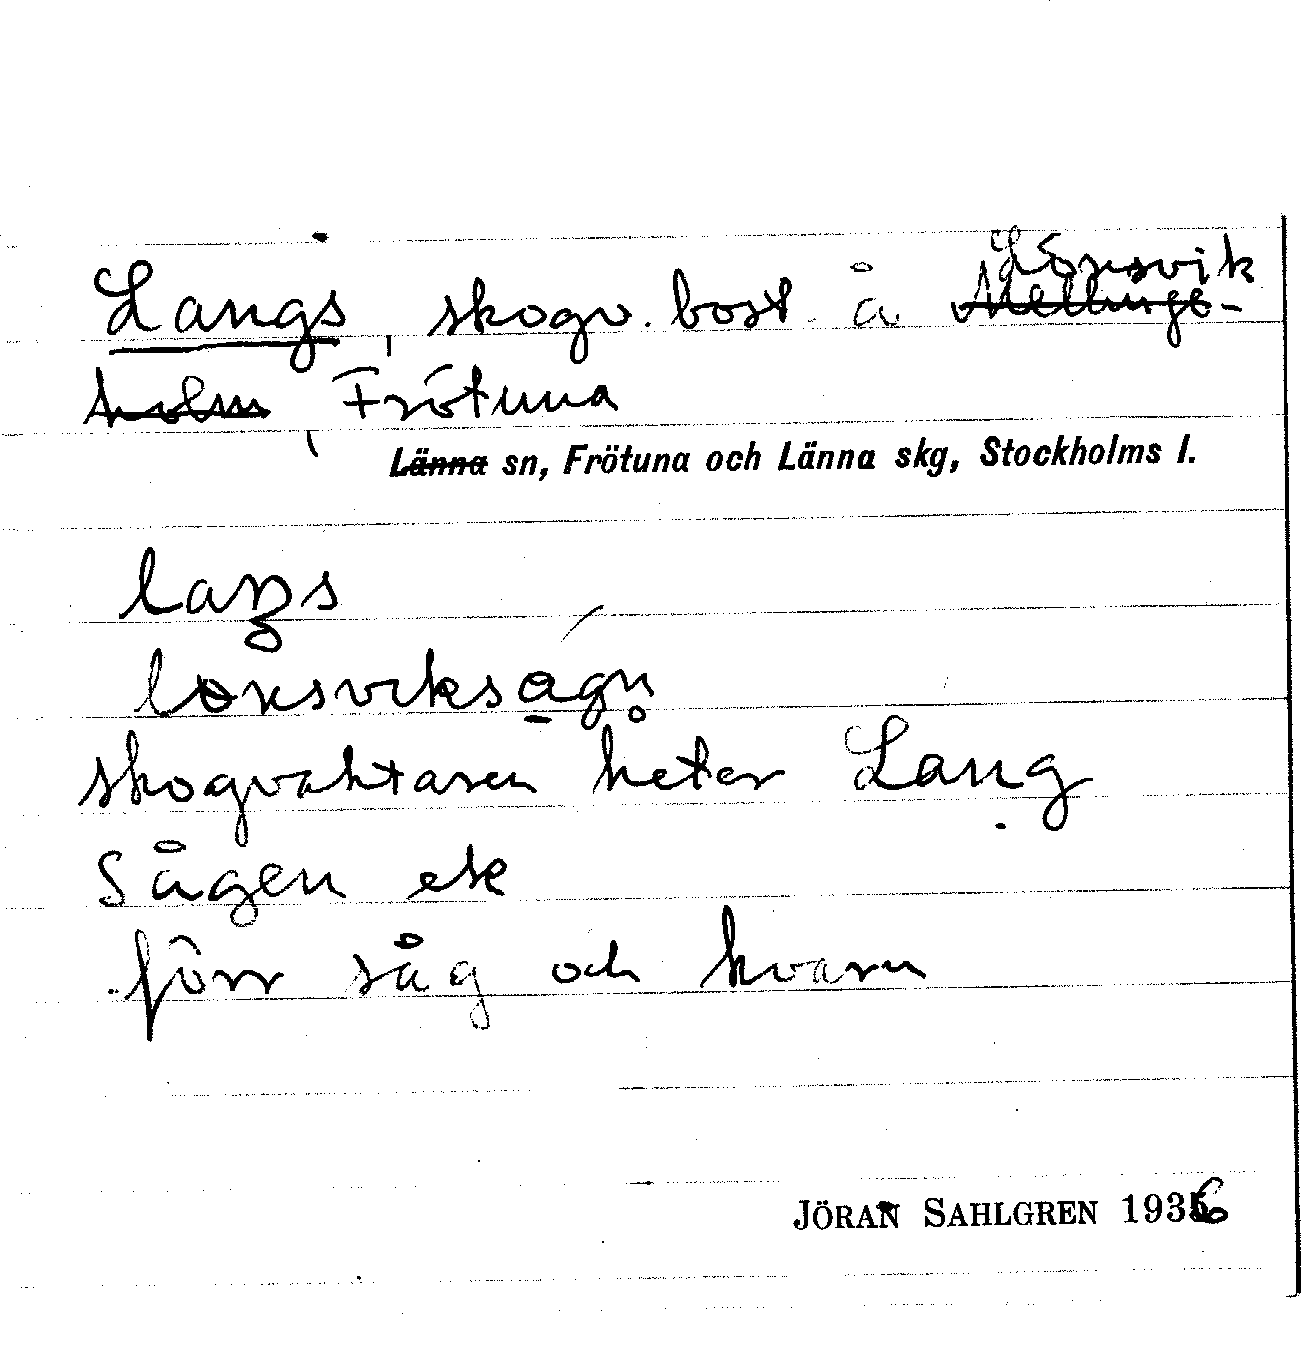 Lönsvik
Langs, skogv. bost. å Mellings-
holm, Frötuna
Länna sn, Frötuna och Länna skg, Stockholms l.
laŋs
skogvaktaren heter Lang
Sågen ek
förr såg och kvarn
JÖRAN SAHLGREN 1936